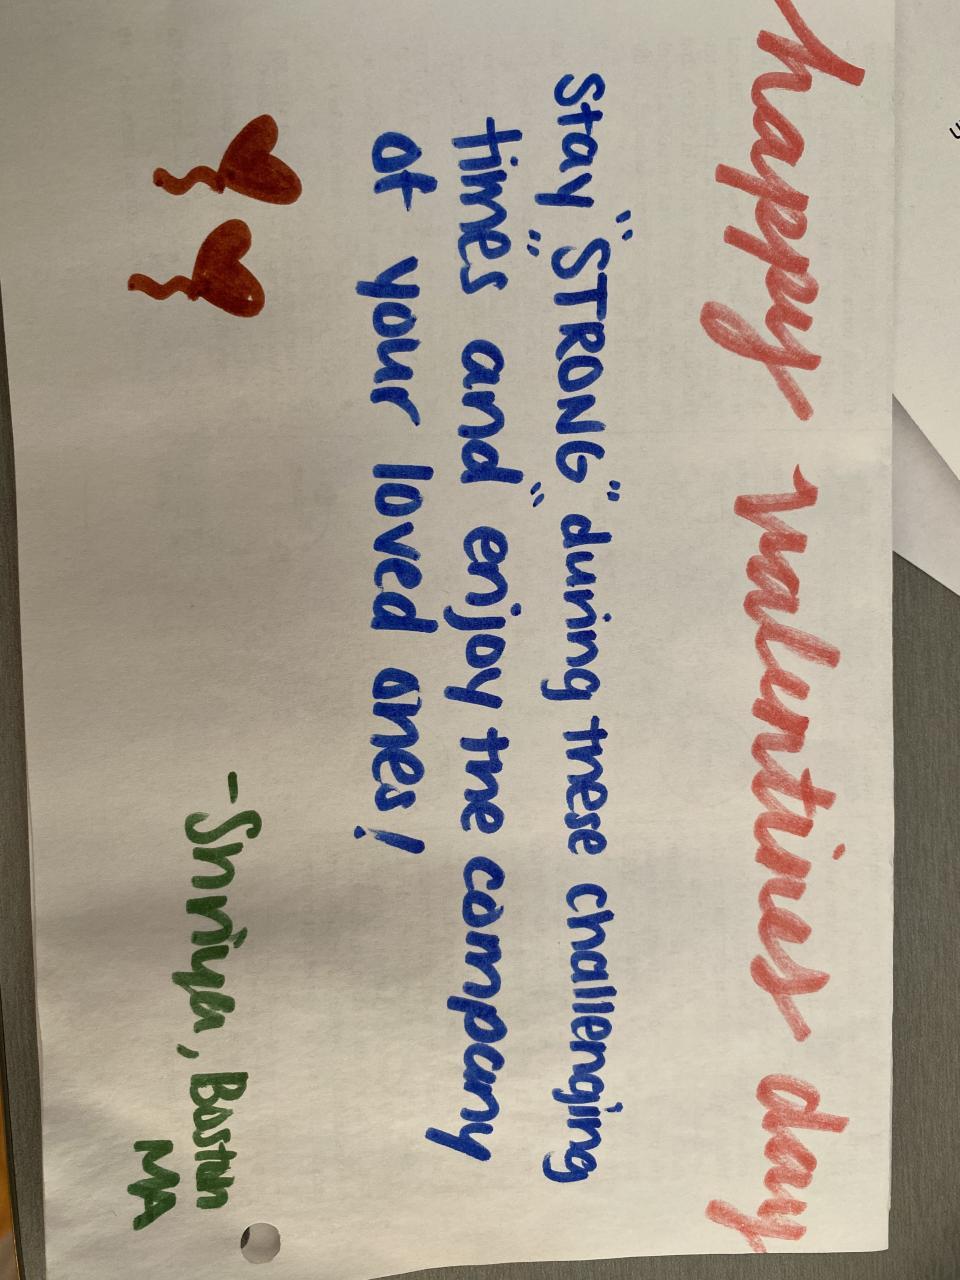 happy valentines day
stay "STRONG" during these challenging
times and enjoy the company
of your loved ones!
- Shriya, Boston
MA